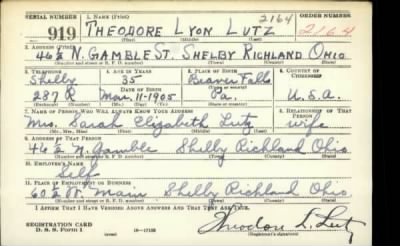 SERIAL NUMBER 1. NAME (Print) ORDER NUMBER
919 THEODORE LYON LUTZ 2164 2164
(First) (Middle) (Last)
2. ADDRESS (Print)
46½ N. GAMBLE ST. SHELBY RICHLAND OHIO
(Number and street or R. F. D. number) (Town) (County) (State)
3. TELEPHONE 4. AGE IN YEARS 5. PLACE OF BIRTH 6. COUNTRY OF CITIZENSHIP
Shelby 35 Beaver Falls
DATE OF BIRTH
287R Mar. 11-1905 Pa. U.S.A.
(Exchange) (Number) (Mo.) (Day) (Yr.) (State or country)
7. NAME OF PERSON WHO WILL ALWAYS KNOW YOUR ADDRESS 8. RELATIONSHIP OF THAT PERSON
Mrs. Sarah Elizabeth Lutz wife
(Mr., Mrs., Miss) (First) (Middle) (Last)
9. ADDRESS OF THAT PERSON
46½ N. Gamble Shelby Richland Ohio
(Number and street or R. F. D. number) (Town) (County) (State)
10. EMPLOYER'S NAME
Self
11. PLACE OF EMPLOYMENT OR BUSINESS
60½ W. Main Shelby Richland Ohio
(Number and street or R. F. D. number) (Town) (County) (State)
I AFFIRM THAT I HAVE VERIFIED ABOVE ANSWERS AND THAT THEY ARE TRUE.
REGISTRATION CARD
D. S. S. Form 1 (over) 16-17105 Theodore L. Lutz
(Registrant's signature)